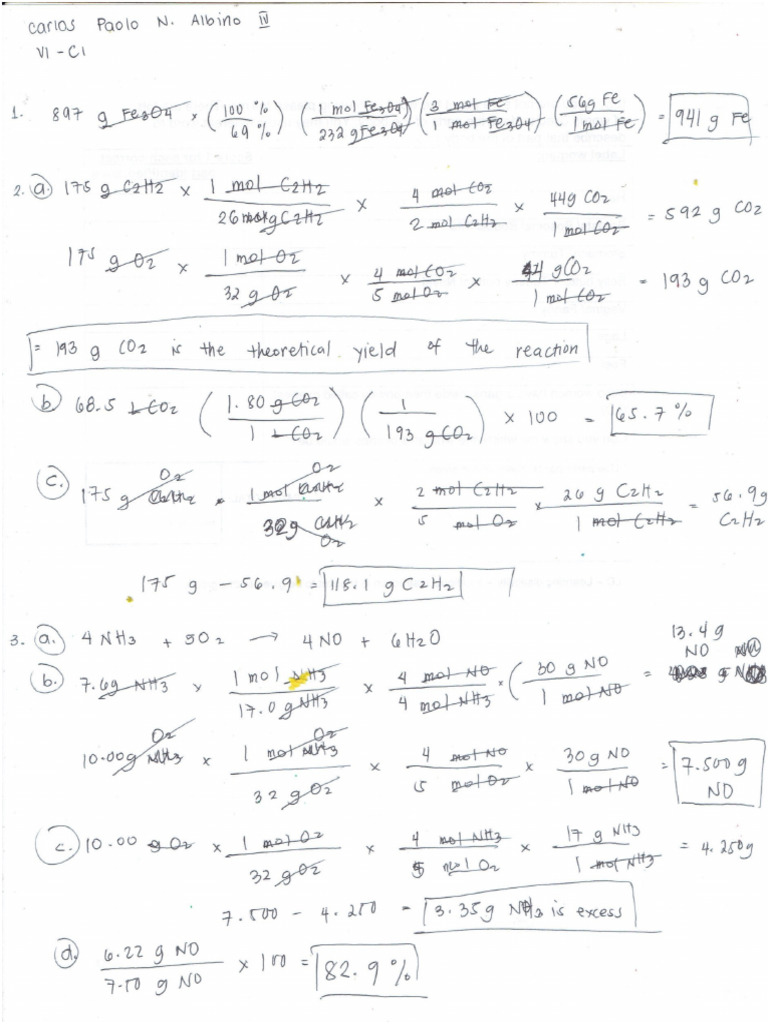 Carlos Paolo N. Albino IV
VI - C1
1. 897 g Fe3O4 × (100 % / 69 %) (1 mol Fe3O4 / 232 g Fe3O4) (3 mol Fe / 1 mol Fe3O4) (56g Fe / 1 mol Fe) = 941 g Fe
2. a. 175 g C2H2 × 1 mol C2H2 / 26 g C2H2 × 4 mol CO2 / 2 mol C2H2 × 44g CO2 / 1 mol CO2 = 592 g CO2
175 g O2 × 1 mol O2 / 32 g O2 × 4 mol CO2 / 5 mol O2 × 44 gCO2 / 1 mol CO2 = 193 g CO2
= 193 g CO2 is the theoretical yield of the reaction
b 68.5 L CO2 (1.80 g CO2 / 1 L CO2) (1 / 193 g CO2) × 100 = 65.7 %
c. 175 g O2 × 1 mol O2 / 32g O2 × 2 mol C2H2 / 5 mol O2 × 26 g C2H2 / 1 mol C2H2 = 56.9g C2H2
175 g - 56.9 = 118.1 g C2H2
3. a. 4 NH3 + 5O2 → 4 NO + 6H2O
b. 7.6g NH3 × 1 mol NH3 / 17.0 g NH3 × 4 mol NO / 4 mol NH3 × (30 g NO / 1 mol NO = 13.4 g NO
10.00g O2 × 1 mol O2 / 32 g O2 × 4 mol NO / 5 mol O2 × 30 g NO / 1 mol NO = 7.500 g NO
c. 10.00 g O2 × 1 mol O2 / 32 g O2 × 4 mol NH3 / 5 mol O2 × 17 g NH3 / 1 mol NH3 = 4.250g
7.500 - 4.250 = 3.35g NH3 is excess
d. 6.22 g NO / 7.50 g NO × 100 = 82.9 %